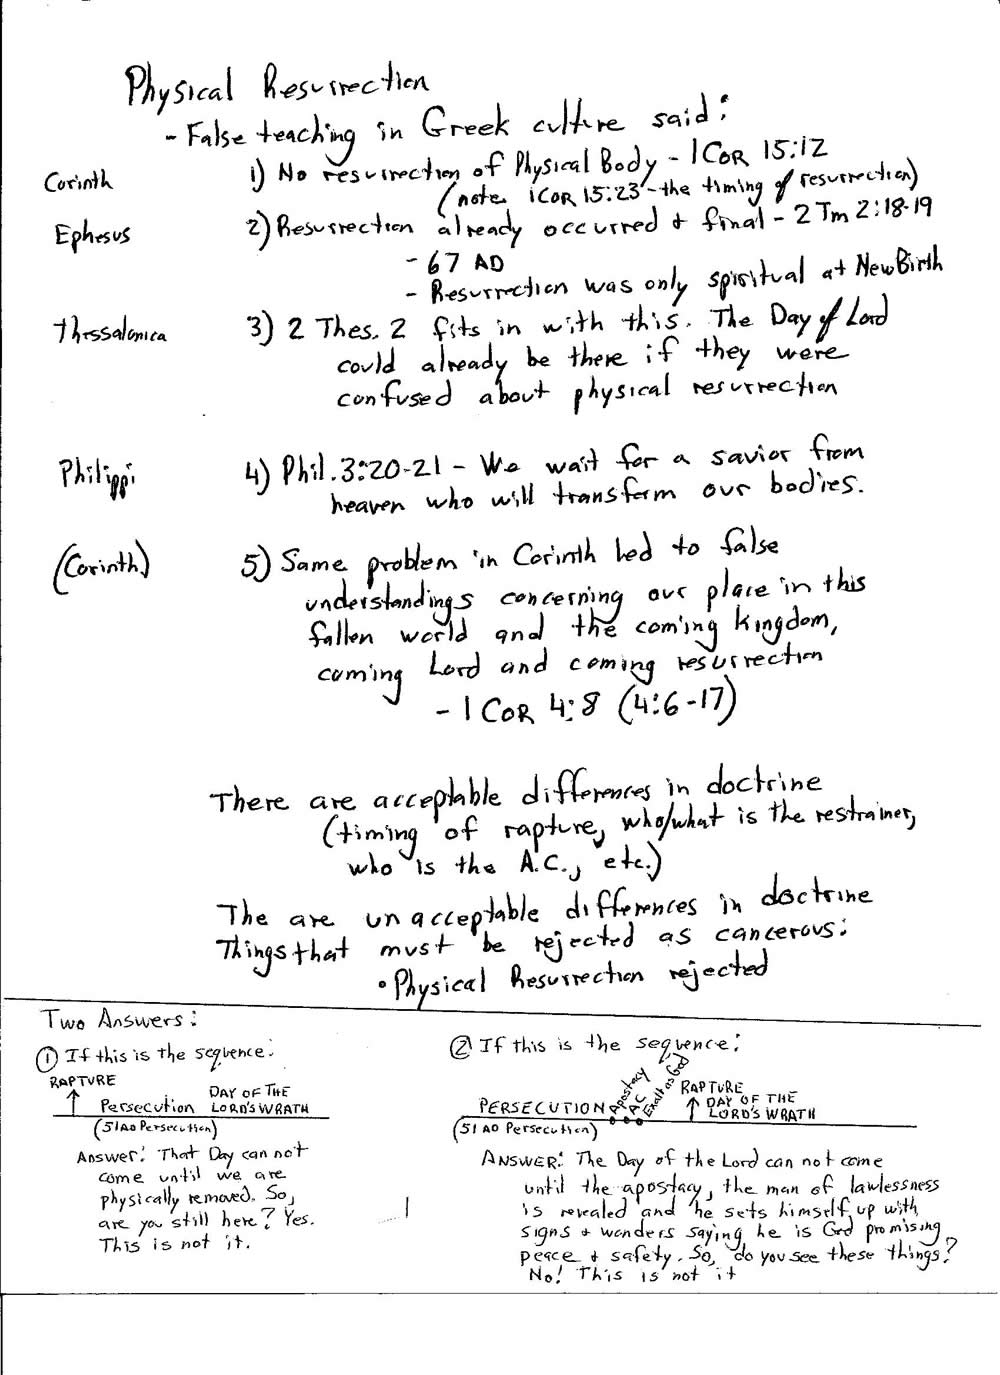 Physical Resurrection
- False teaching in Greek culture said:
Corinth 1) No resurrection of Physical Body - 1 COR 15:12
(note 1 COR 15:23 - the timing of resurrection)
Ephesus 2) Resurrection already occurred + final - 2 Tm 2:18-19
- 67 AD
- Resurrection was only spiritual at New Birth
Thessalonica 3) 2 Thes. 2 fits in with this. The Day of Lord
could already be there if they were
confused about physical resurrection
Philippi 4) Phil. 3:20-21 - We wait for a savior from
heaven who will transform our bodies.
(Corinth) 5) Same problem in Corinth led to false
understandings concerning our place in this
fallen world and the coming kingdom,
coming Lord and coming resurrection
- 1 COR 4:8 (4:6-17)
There are acceptable differences in doctrine
(timing of rapture, who/what is the restrainer,
who is the A.C., etc.)
The are unacceptable differences in doctrine
Things that must be rejected as cancerous:
• Physical Resurrection rejected
Two Answers:
① If this is the sequence:
RAPTURE
Persecution DAY OF THE
LORD'S WRATH
(51 AD Persecution)
Answer: That Day can not
come until we are
physically removed. So,
are you still here? Yes.
This is not it.
② If this is the sequence:
PERSECUTION Apostacy A.C. Exalt as God RAPTURE
DAY OF THE
LORD'S WRATH
(51 AD Persecution)
ANSWER: The Day of the Lord can not come
until the apostacy, the man of lawlessness
is revealed and he sets himself up with
signs + wonders saying he is God promising
peace + safety. So, do you see these things?
No! This is not it